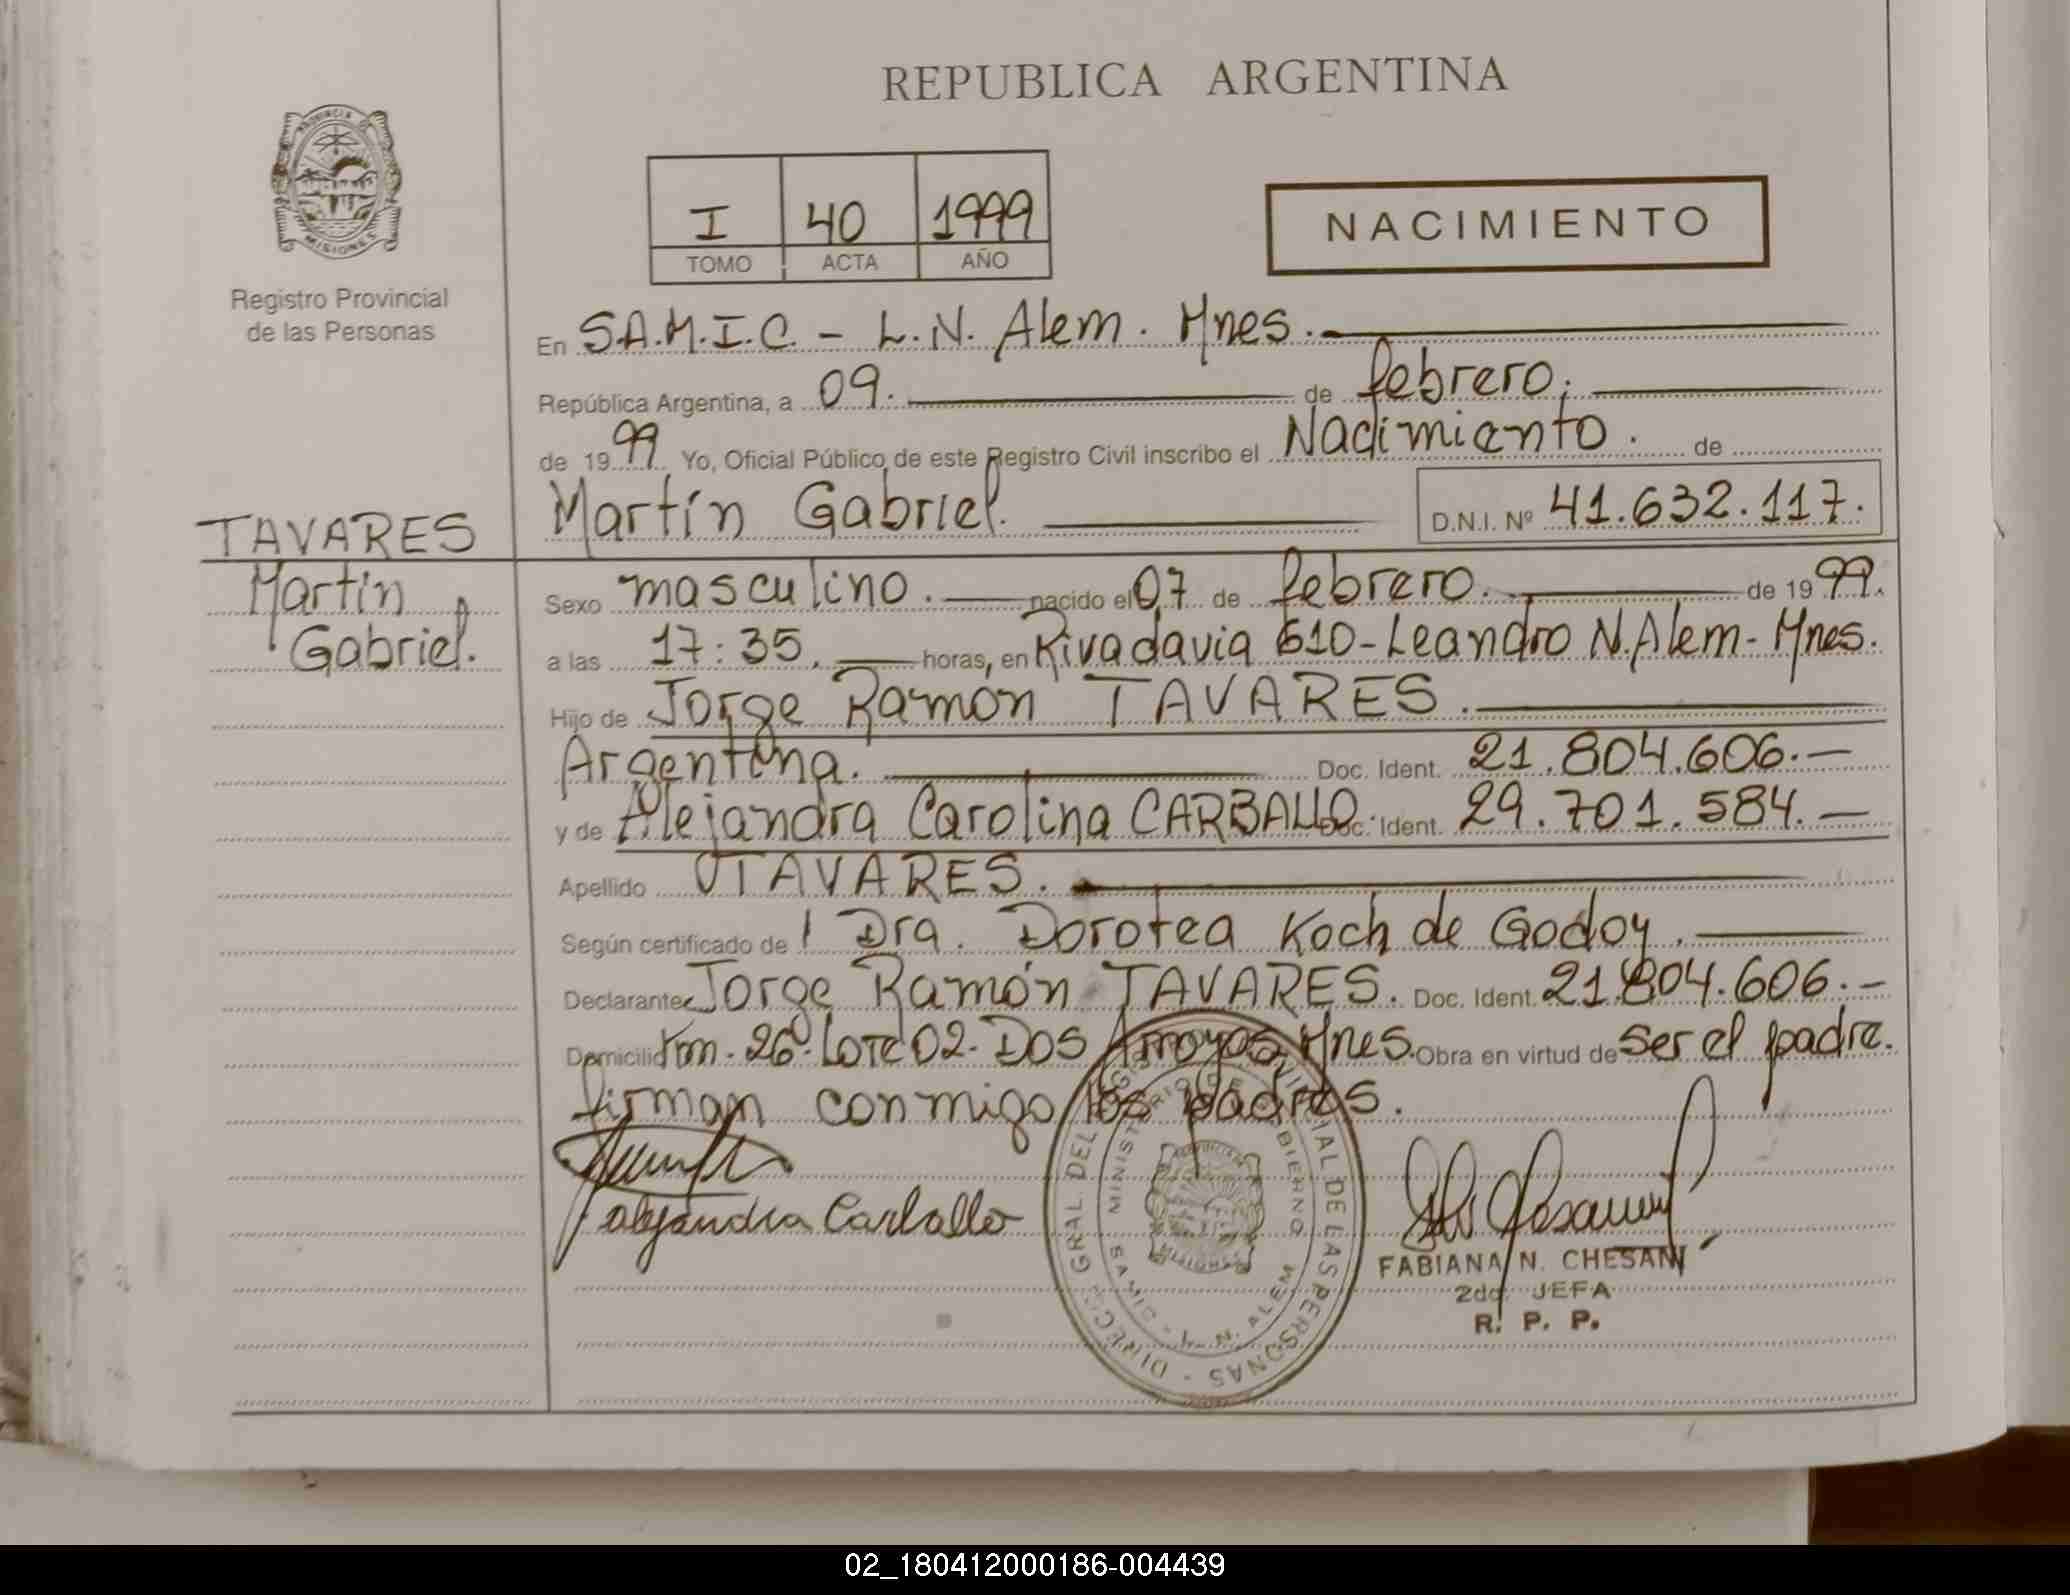 REPUBLICA ARGENTINA
PROVINCIA DE
MISIONES
I 40 1999
TOMO ACTA AÑO
NACIMIENTO
Registro Provincial
de las Personas
En S.A.M.I.C. - L.N. Alem. Mnes.
República Argentina, a 09. de febrero.
de 1999 Yo, Oficial Público de este Registro Civil inscribo el Nacimiento. de
Martín Gabriel. D.N.I. Nº 41.632.117.
TAVARES
Martín
Gabriel.
Sexo masculino. nacido el 07 de febrero. de 1999.
a las 17:35. horas, en Rivadavia 610-Leandro N. Alem-Mnes.
Hijo de Jorge Ramón TAVARES.
Argentina. Doc. Ident. 21.804.606.-
y de Alejandra Carolina CARBALLO Doc. Ident. 29.701.584.-
Apellido TAVARES.
Según certificado de Dra. Dorotea Koch de Godoy.
Declarante Jorge Ramón TAVARES. Doc. Ident. 21.804.606.-
Domicilio Km. 26. Lote 02. Dos Arroyos Mnes. Obra en virtud de ser el padre.
firman conmigo los padres.
alejandra Carballo
DIRECC. GRAL. DEL REGISTRO PROVINCIAL DE LAS PERSONAS
MINISTERIO DE GOBIERNO
SAMIC - L. N. ALEM
FABIANA N. CHESANI
2da. JEFA
R. P. P.
02_180412000186-004439